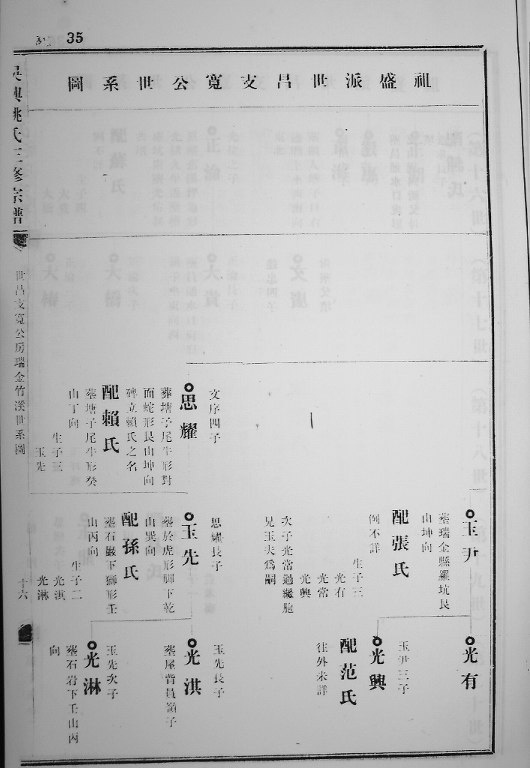 35
祖盛派世呂支寬公世系圖
吳興姚氏三修宗譜
世呂支寬公房瑞金竹溪世系圖
十六
文序四子
思耀
葬塘子尾牛形對
面蛇形艮山坤向
碑立賴氏之名
配賴氏
塟塘子尾牛形癸
山丁向
生子三
玉先
玉尹
塟瑞金縣羅坑艮
山坤向
配張氏
俱不詳
生子三
光有
光常
光興
次子光常過繼胞
兄玉夫爲嗣
思耀長子
玉先
塟於虎形脚下乾
山巽向
配孫氏
塟石巖下獅形壬
山丙向
生子二
光淇
光淋
光有
玉尹三子
光興
配范氏
往外未詳
玉先長子
光淇
塟尾背員嶺子
玉先次子
光淋
塟石岩下壬山丙
向